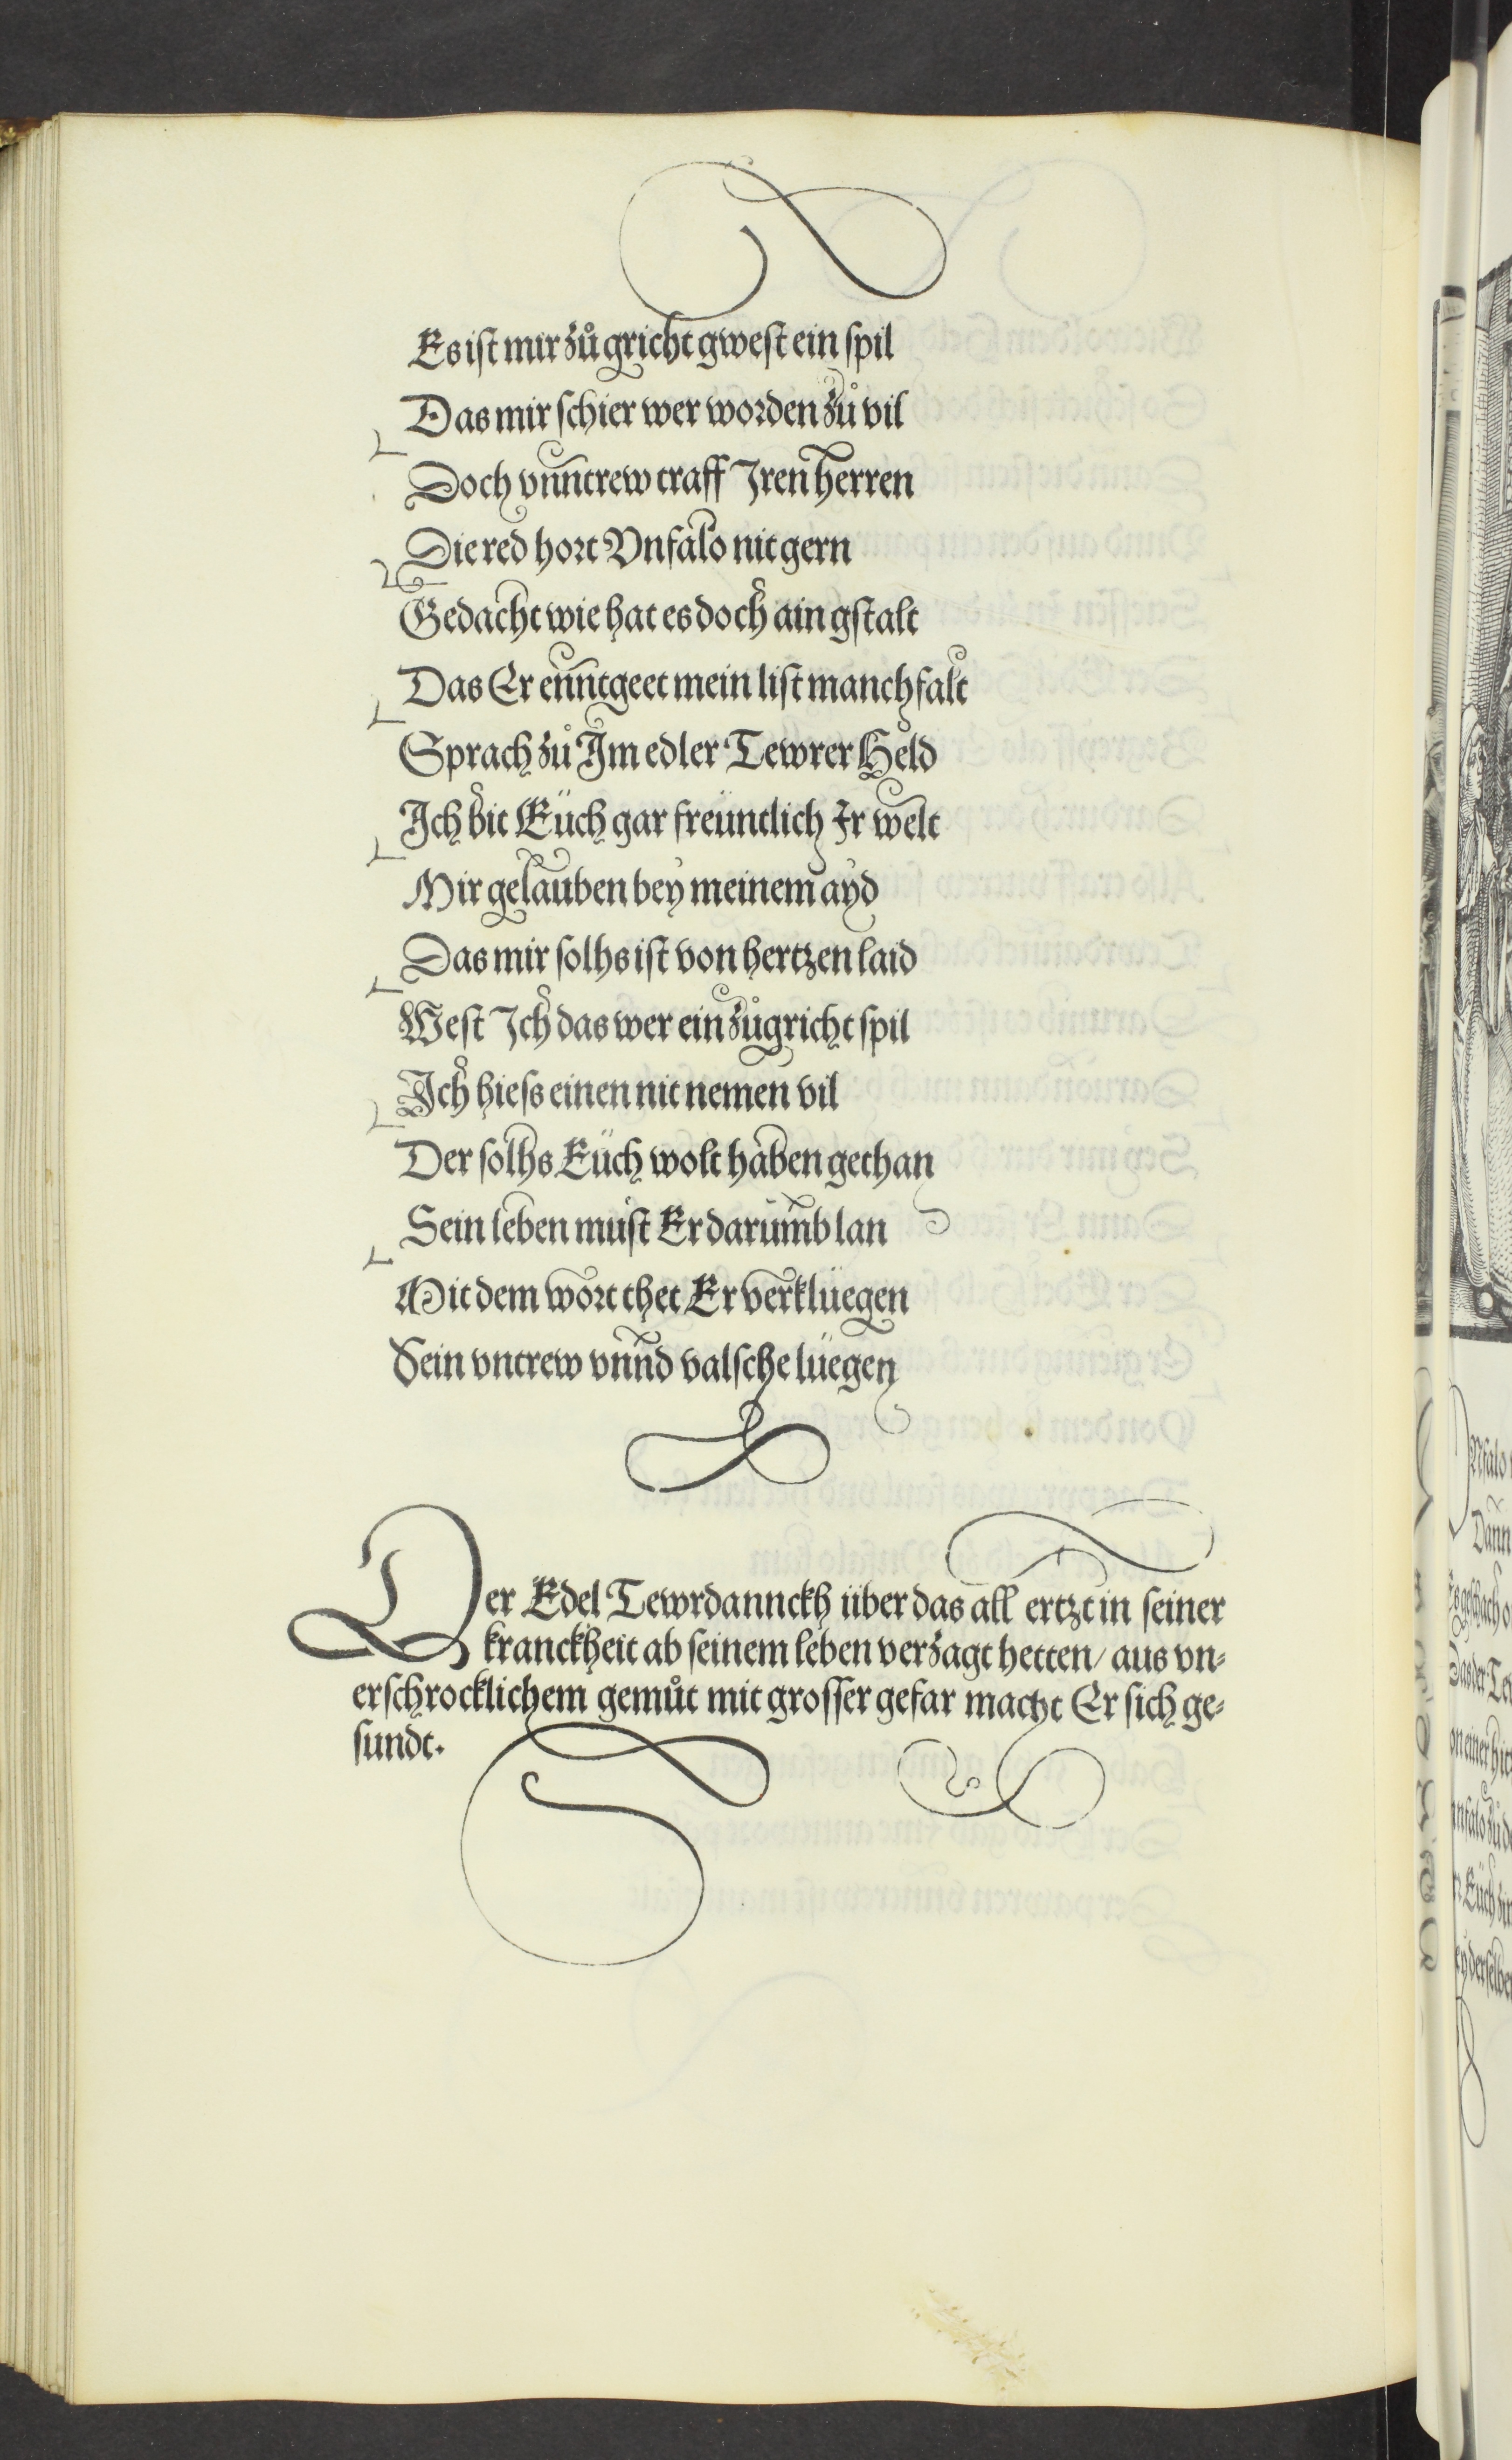 Es iſt mir zů gricht gweſt ein ſpil
Das mir ſchier wer worden zů vil
Doch vnntrew traff Iren herren
Die red hort Vnfalo nit gern
Gedacht wie hat es doch ain gſtalt
Das Er enntgeet mein liſt manchfalt
Sprach zů Im edler Tewrer Held
Ich bit Eüch gar freüntlich Ir welt
Mir gelauben bey meinem ayd
Das mir ſolhs iſt von hertzen laid
Weſt Ich das wer ein zůgricht ſpil
Ich hieſs einen nit nemen vil
Der ſolhs Eüch wolt haben gethan
Sein leben muſt Er darumb lan
Mit dem wort thet Er verklüegen
Sein vntrew vnnd valſche lüegen
Der Edel Tewrdannckh über das all ertzt in ſeiner
kranckheit ab ſeinem leben verzagt hetten/ aus vn⸗
erſchrocklichem gemůt mit groſſer gefar macht Er ſich ge⸗
ſundt.